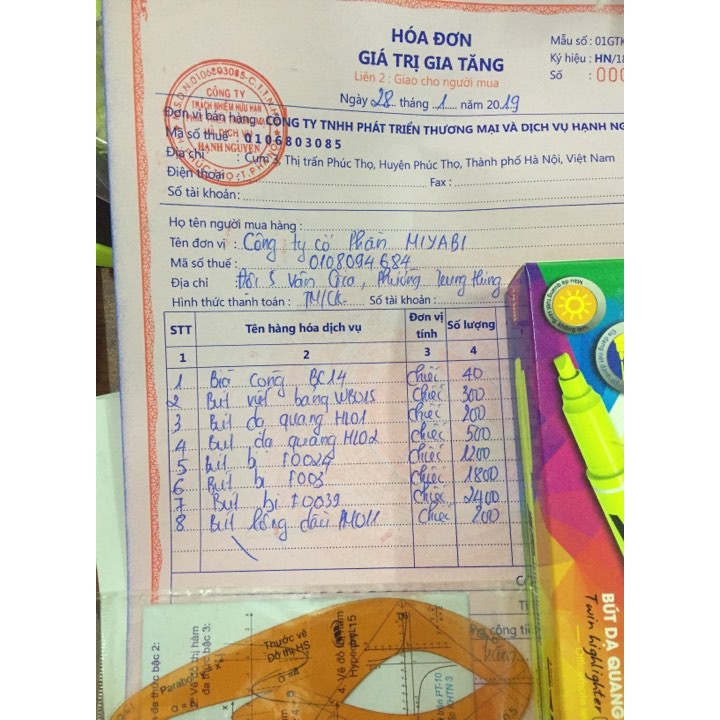 HÓA ĐƠN
GIÁ TRỊ GIA TĂNG
Liên 2 : Giao cho người mua
Ngày 28 tháng 1 năm 2019
Mẫu số : 01GTK
Ký hiệu : HN/18
Số : 000
Đơn vị bán hàng : CÔNG TY TNHH PHÁT TRIỂN THƯƠNG MẠI VÀ DỊCH VỤ HẠNH NG
Mã số thuế : 0106803085
Địa chỉ : Cụm 3, Thị trấn Phúc Thọ, Huyện Phúc Thọ, Thành phố Hà Nội, Việt Nam
Điện thoại : Fax :
Số tài khoản:
CÔNG TY
TRÁCH NHIỆM HỮU HẠN
HẠNH NGUYÊN
Họ tên người mua hàng :
Tên đơn vị : Công ty cổ phần MIYABI
Mã số thuế : 0108094684
Địa chỉ Đội 5 Phường
Hình thức thanh toán : TM/CK Số tài khoản :
STT Tên hàng hóa dịch vụ Đơn vị tính Số lượng
1 2 3 4
1 Bìa còng BC14 chiếc 40
2 Bút viết bảng WB015 chiếc 300
3 Bút dạ quang HL01 chiếc 200
4 Bút dạ quang HL02 chiếc 500
5 Bút bi chiếc 1200
6 Bút bi chiếc 1800
7 Bút bi chiếc 2400
8 Bút lông dầu PM011 chiếc 200
BÚT DẠ QUANG
Twin highlighter
đa thức bậc 2:
2. Vẽ đồ thị hàm
đa thức bậc 3:
Parabol
Thước vẽ
Đồ thị HS
4. Vẽ đồ thị hàm